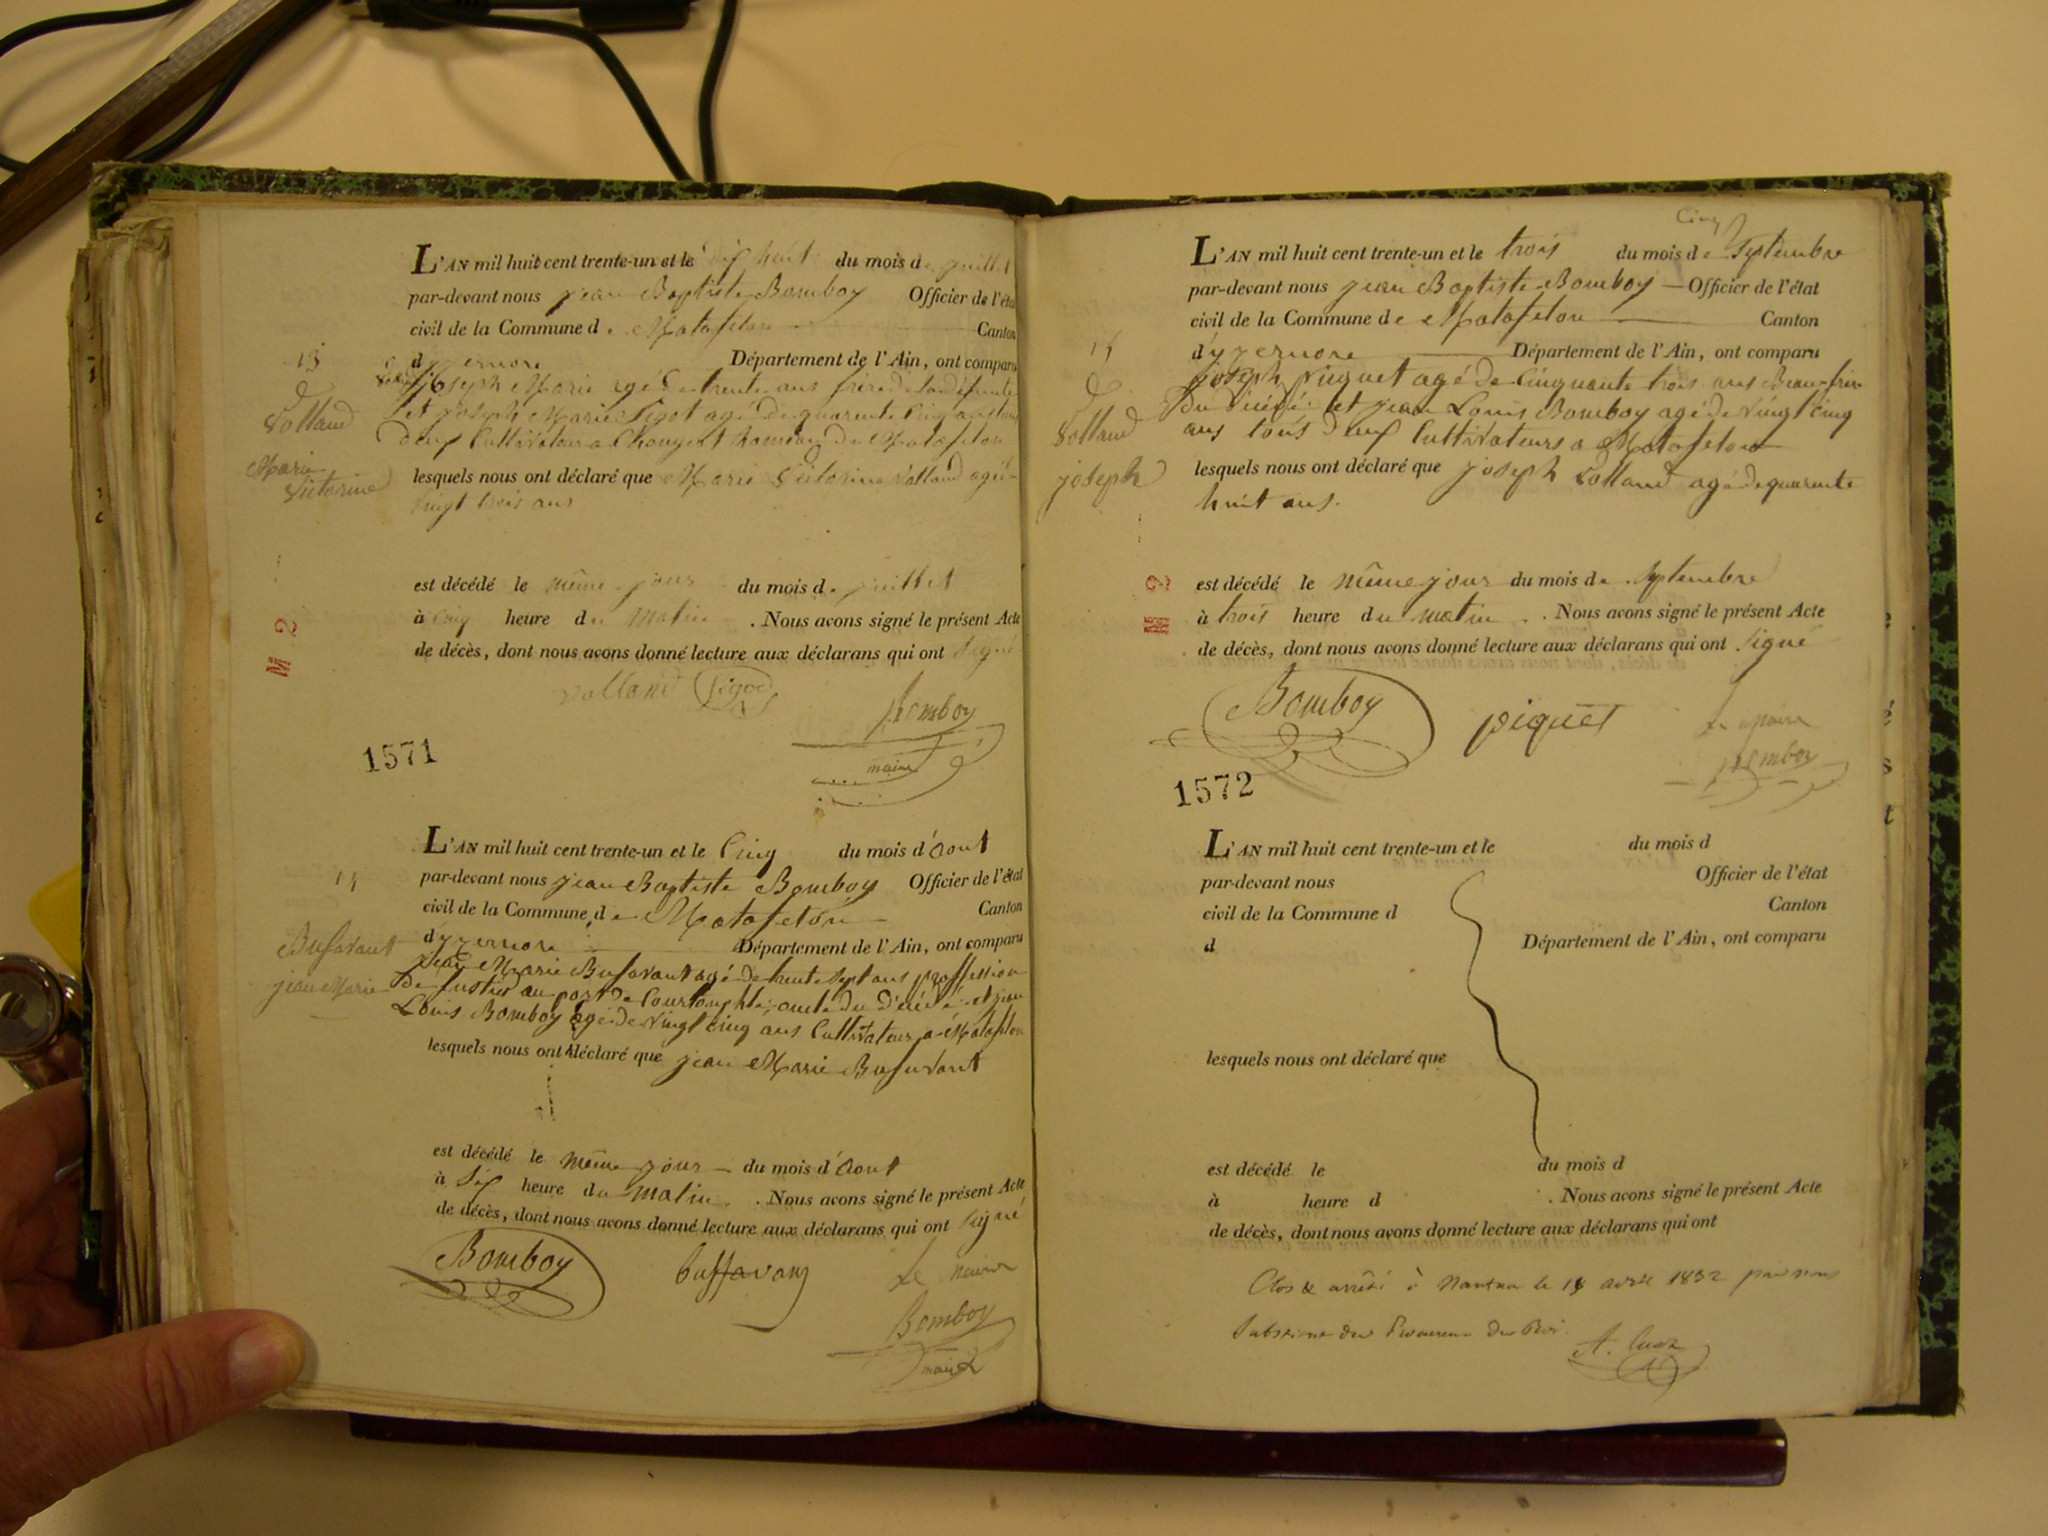 L'AN mil huit cent trente-un et le dix huit du mois de juillet
par-devant nous jean Baptiste Bomboy Officier de l'état
civil de la Commune de Matafelon Canton
d'yzernore Département de l'Ain, ont comparu
13
Volland
joseph Marie agé de trente ans frère de la défunte
et joseph Marie Sigot agé de quarente cinq ans tous
deux Cultivateurs a Matafelon
Marie
Victorine
lesquels nous ont déclaré que Marie Victorine Volland agée
vingt trois ans
est décédé le même jour du mois de juillet
à Cinq heure du Matin. Nous avons signé le présent Acte
de décès, dont nous avons donné lecture aux déclarans qui ont signé
M 2
volland Bomboy
maire
1571
L'AN mil huit cent trente-un et le Cinq du mois d'aout
par-devant nous jean Baptiste Bomboy Officier de l'état
civil de la Commune de Matafelon Canton
d'yzernore Département de l'Ain, ont comparu
14
Bufavant
jean Marie
jean Marie Bufavant agé de trente sept ans proffession
de au port de oncle du décédé et jean
Louis Bomboy agé de vingt cinq ans Cultivateur a Matafelon
lesquels nous ont déclaré que jean Marie Bufavant
est décédé le même jour du mois d'aout
à Six heure du Matin. Nous avons signé le présent Acte
de décès, dont nous avons donné lecture aux déclarans qui ont signé
Bomboy buffavan Le maire
Bomboy
maire
Cinq
L'AN mil huit cent trente-un et le trois du mois de Septembre
par-devant nous jean Baptiste Bomboy Officier de l'état
civil de la Commune de Matafelon Canton
d'yzernore Département de l'Ain, ont comparu
15
Volland
joseph
joseph piquet agé de Cinquante trois ans Beau-frère
du décédé et jean Louis Bomboy agé de vingt cinq
ans tous deux Cultivateurs a Matafelon
lesquels nous ont déclaré que joseph Volland agé de quarente
huit ans.
est décédé le même jour du mois de Septembre
à trois heure du matin. Nous avons signé le présent Acte
de décès, dont nous avons donné lecture aux déclarans qui ont signé
M 2
Bomboy piquet Le Maire
Bomboy
1572
L'AN mil huit cent trente-un et le du mois d
par-devant nous Officier de l'état
civil de la Commune d Canton
d Département de l'Ain, ont comparu
lesquels nous ont déclaré que
est décédé le du mois d
à heure d . Nous avons signé le présent Acte
de décès, dont nous avons donné lecture aux déclarans qui ont
Clos & arrêté à Nantua le avril 1832 par nous
Substitut du Procureur du Roi.